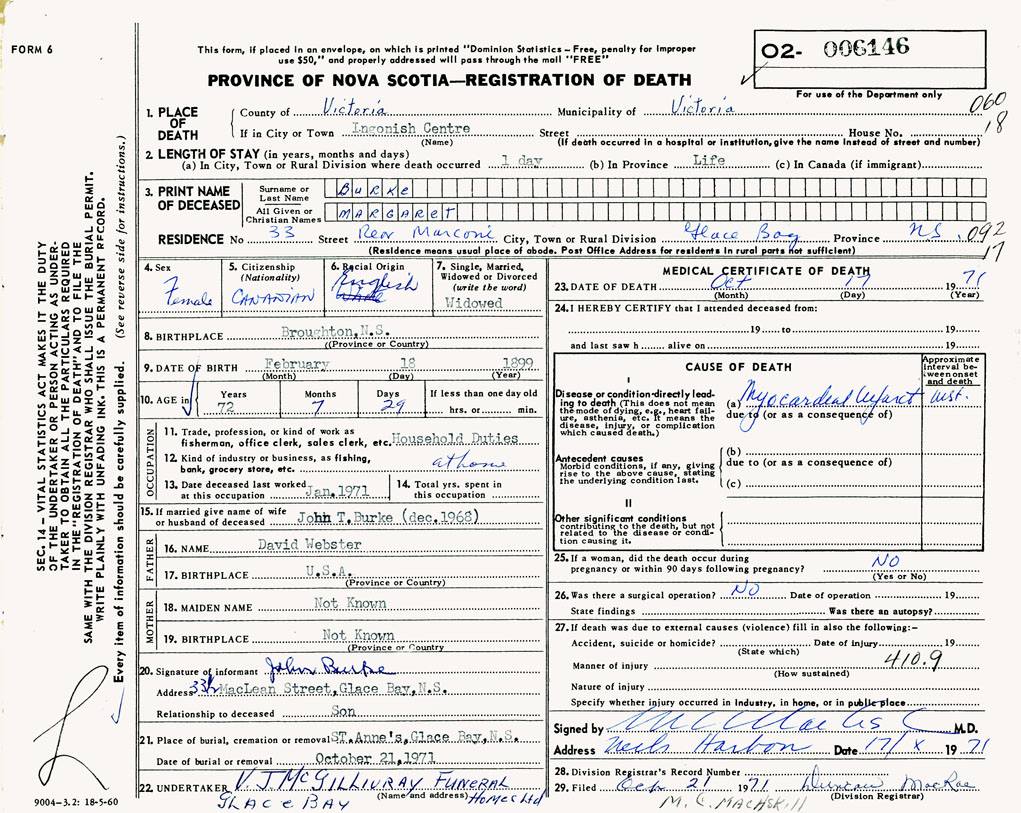 FORM 6
This form, if placed in an envelope, on which is printed "Dominion Statistics – Free, penalty for improper
use $50," and properly addressed will pass through the mail "FREE"
O2- 006146
PROVINCE OF NOVA SCOTIA—REGISTRATION OF DEATH
For use of the Department only
060
18
1. PLACE OF DEATH
County of Victoria Municipality of Victoria
If in City or Town Ingonish Centre Street House No.
(Name) (If death occurred in a hospital or institution, give the name instead of street and number)
2. LENGTH OF STAY (in years, months and days)
(a) In City, Town or Rural Division where death occurred 1 day (b) In Province Life (c) In Canada (if immigrant)
3. PRINT NAME OF DECEASED
Surname or Last Name BURKE
All Given or Christian Names MARGARET
RESIDENCE No 33 Street Rear Marconi City, Town or Rural Division Glace Bay Province NS.
092
17
(Residence means usual place of abode. Post Office Address for residents in rural parts not sufficient)
4. Sex
Female
5. Citizenship
(Nationality)
CANADIAN
6. Racial Origin
English
7. Single, Married,
Widowed or Divorced
(write the word)
Widowed
8. BIRTHPLACE Broughton, N.S.
((Province or Country)
9. DATE OF BIRTH February 18 1899
(Month) (Day) (Year)
10. AGE in
Years Months Days If less than one day old
72 7 29 hrs. or min.
OCCUPATION
11. Trade, profession, or kind of work as
fisherman, office clerk, sales clerk, etc. Household Duties
12. Kind of industry or business, as fishing,
bank, grocery store, etc. at home
13. Date deceased last worked
at this occupation Jan.1971
14. Total yrs. spent in
this occupation
15. If married give name of wife
or husband of deceased John T.Burke (dec.1968)
FATHER
16. NAME David Webster
17. BIRTHPLACE U.S.A.
(Province or Country)
MOTHER
18. MAIDEN NAME Not Known
19. BIRTHPLACE Not Known
(Province or Country
20. Signature of informant John Burke
Address 33½ MacLean Street, Glace Bay, N.S.
Relationship to deceased Son
21. Place of burial, cremation or removal ST. Anne's, Glace Bay, N.S.
Date of burial or removal October 21,1971
22. UNDERTAKER V. J. McGILLIVRAY FUNERAL
(Name and address) HOMES Ltd
GLACE BAY
MEDICAL CERTIFICATE OF DEATH
23. DATE OF DEATH Oct 17 1971
(Month) (Day) (Year)
24. I HEREBY CERTIFY that I attended deceased from:
19 to 19
and last saw h alive on 19
CAUSE OF DEATH
Approximate
interval be-
tween onset
and death
I
Disease or condition directly lead-
ing to death (This does not mean
the mode of dying, e.g., heart fail-
ure, asthenia, etc. It means the
disease, injury, or complication
which caused death.)
(a) Myocardial Infarct inst.
due to (or as a consequence of)
Antecedent causes
Morbid conditions, if any, giving
rise to the above cause, stating
the underlying condition last.
(b)
due to (or as a consequence of)
(c)
II
Other significant conditions
contributing to the death, but not
related to the disease or condi-
tion causing it.
25. If a woman, did the death occur during
pregnancy or within 90 days following pregnancy? NO
(Yes or No)
26. Was there a surgical operation? NO Date of operation 19
State findings Was there an autopsy?
27. If death was due to external causes (violence) fill in also the following:–
Accident, suicide or homicide? Date of injury 19
(State which)
410.9
Manner of injury
(How sustained)
Nature of injury
Specify whether injury occurred in Industry, in home, or in public place
Signed by M.D.
Address Neils Harbour Date 17/X 1971
28. Division Registrar's Record Number
29. Filed Oct 21 1971 Duncan MacRae
(Division Registrar)
SEC. 14 – VITAL STATISTICS ACT MAKES IT THE DUTY
OF THE UNDERTAKER OR PERSON ACTING AS UNDER-
TAKER TO OBTAIN ALL THE PARTICULARS REQUIRED
IN THE "REGISTRATION OF DEATH" AND TO FILE THE
SAME WITH THE DIVISION REGISTRAR WHO SHALL ISSUE THE BURIAL PERMIT.
WRITE PLAINLY WITH UNFADING INK. THIS IS A PERMANENT RECORD.
Every item of information should be carefully supplied. (See reverse side for instructions.)
9004–3.2: 18-5-60